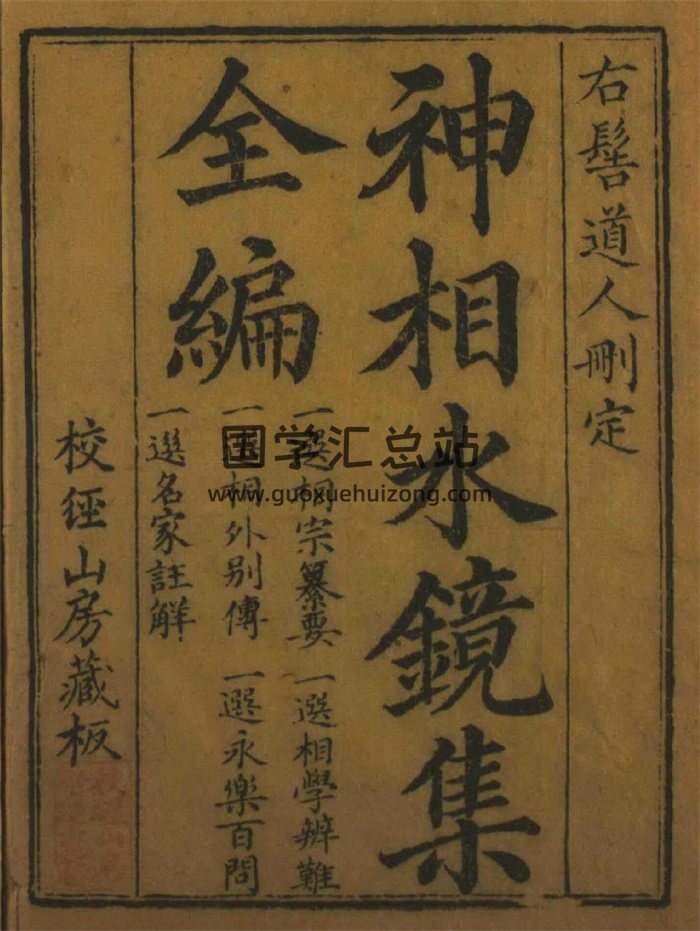 右髻道人刪定
神相水鏡集
全編
一選相宗纂要
一選相學辨難
一選相外别傳
一選永樂百問
一選名家註解
校經山房藏板
国学汇总站
www.guoxuehuizong.com